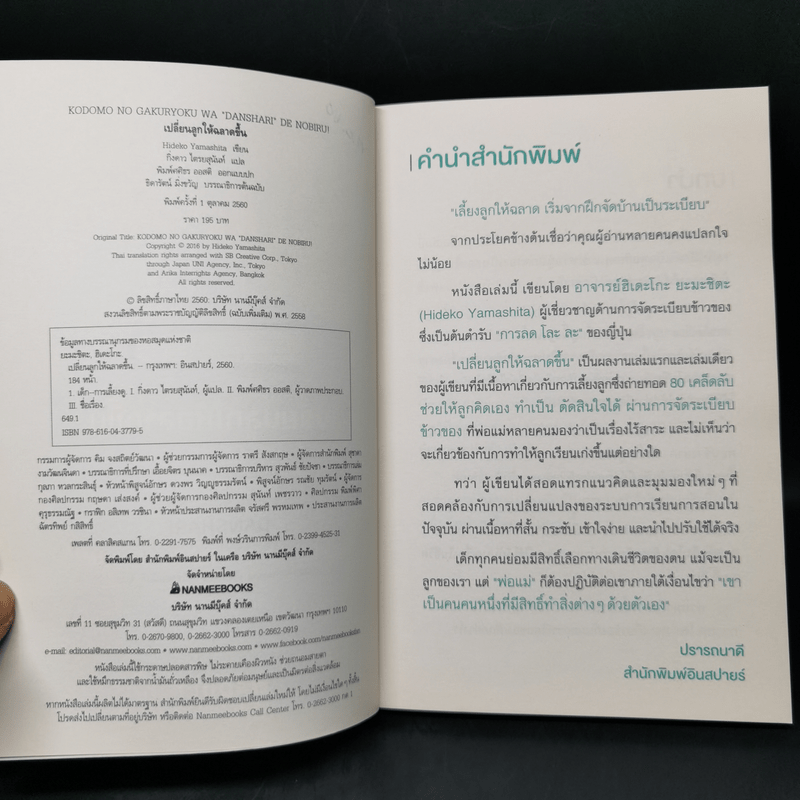 KODOMO NO GAKURYOKU WA "DANSHARI" DE NOBIRU!
เปลี่ยนลูกให้ฉลาดขึ้น
Hideko Yamashita เขียน
กิ่งดาว ไตรยสุนันท์ แปล
พิมพ์ศศิธร ออสติ ออกแบบปก
ธิดารัตน์ มิ่งขวัญ บรรณาธิการต้นฉบับ
พิมพ์ครั้งที่ 1 ตุลาคม 2560
ราคา 195 บาท
Original Title: KODOMO NO GAKURYOKU WA "DANSHARI" DE NOBIRU!
Copyright © 2016 by Hideko Yamashita
Thai translation rights arranged with SB Creative Corp., Tokyo
through Japan UNI Agency, Inc., Tokyo
and Arika Interrights Agency, Bangkok
All rights reserved.
© ลิขสิทธิ์ภาษาไทย 2560: บริษัท นานมีบุ๊คส์ จำกัด
สงวนลิขสิทธิ์ตามพระราชบัญญัติลิขสิทธิ์ (ฉบับเพิ่มเติม) พ.ศ. 2558
ข้อมูลทางบรรณานุกรมของหอสมุดแห่งชาติ
ยะมะชิตะ, ฮิเดะโกะ.
เปลี่ยนลูกให้ฉลาดขึ้น. – กรุงเทพฯ: อินสปายร์, 2560.
184 หน้า.
1. เด็ก–การเลี้ยงดู. I. กิ่งดาว ไตรยสุนันท์, ผู้แปล. II. พิมพ์ศศิธร ออสติ, ผู้วาดภาพประกอบ.
III. ชื่อเรื่อง.
649.1
ISBN 978-616-04-3779-5
กรรมการผู้จัดการ คิม จงสถิตย์วัฒนา • ผู้ช่วยกรรมการผู้จัดการ ราตรี สังสกฤษ • ผู้จัดการสำนักพิมพ์ สุชาดา
งามวัฒนจินดา • บรรณาธิการที่ปรึกษา เอื้อยจิตร บุนนาค • บรรณาธิการบริหาร สุวพันธ์ ชัยปัจชา • บรรณาธิการเล่ม
กุลภา หวลกระสินธุ์ • หัวหน้าพิสูจน์อักษร ดวงพร วิญญูธรรมรัตน์ • พิสูจน์อักษร รณชัย ทุมรัตน์ • ผู้จัดการ
กองศิลปกรรม กฤษดา เส่งสงค์ • ผู้ช่วยผู้จัดการกองศิลปกรรม สุนันท์ เพชรวาว • ศิลปกรรม พิมพ์พิดา
คุรุธรรมณัฐ • กราฟิก อสิเทพ วรชินา • หัวหน้าประสานงานการผลิต จรัสศรี พรหมเทพ • ประสานงานการผลิต
ฉัตรทิพย์ กสิสิทธิ์
เพลตที่ คลาสิคสแกน โทร. 0-2291-7575 พิมพ์ที่ พงษ์วรินการพิมพ์ โทร. 0-2399-4525-31
จัดพิมพ์โดย สำนักพิมพ์อินสปายร์ ในเครือ บริษัท นานมีบุ๊คส์ จำกัด
จัดจำหน่ายโดย
NANMEEBOOKS
บริษัท นานมีบุ๊คส์ จำกัด
เลขที่ 11 ซอยสุขุมวิท 31 (สวัสดี) ถนนสุขุมวิท แขวงคลองเตยเหนือ เขตวัฒนา กรุงเทพฯ 10110
โทร. 0-2670-9800, 0-2662-3000 โทรสาร 0-2662-0919
e-mail: editorial@nanmeebooks.com • www.nanmeebooks.com • www.facebook.com/nanmeebooksfan
หนังสือเล่มนี้ใช้กระดาษปลอดสารพิษ ไม่ระคายเคืองผิวหนัง ช่วยถนอมสายตา
และใช้หมึกธรรมชาติจากน้ำมันถั่วเหลือง จึงปลอดภัยต่อมนุษย์และเป็นมิตรต่อสิ่งแวดล้อม
หากหนังสือเล่มนี้ผลิตไม่ได้มาตรฐาน สำนักพิมพ์ยินดีรับผิดชอบเปลี่ยนเล่มใหม่ให้ โดยไม่มีเงื่อนไขใดๆ ทั้งสิ้น
โปรดส่งไปเปลี่ยนตามที่อยู่บริษัท หรือติดต่อ Nanmeebooks Call Center โทร. 0-2662-3000 กด 1
คำนำสำนักพิมพ์
"เลี้ยงลูกให้ฉลาด เริ่มจากฝึกจัดบ้านเป็นระเบียบ"
จากประโยคข้างต้นเชื่อว่าคุณผู้อ่านหลายคนคงแปลกใจ
ไม่น้อย
หนังสือเล่มนี้ เขียนโดย อาจารย์ฮิเดะโกะ ยะมะชิตะ
(Hideko Yamashita) ผู้เชี่ยวชาญด้านการจัดระเบียบข้าวของ
ซึ่งเป็นต้นตำรับ "การลด โละ ละ" ของญี่ปุ่น
"เปลี่ยนลูกให้ฉลาดขึ้น" เป็นผลงานเล่มแรกและเล่มเดียว
ของผู้เขียนที่มีเนื้อหาเกี่ยวกับการเลี้ยงลูกซึ่งถ่ายทอด 80 เคล็ดลับ
ช่วยให้ลูกคิดเอง ทำเป็น ตัดสินใจได้ ผ่านการจัดระเบียบ
ข้าวของ ที่พ่อแม่หลายคนมองว่าเป็นเรื่องไร้สาระ และไม่เห็นว่า
จะเกี่ยวข้องกับการทำให้ลูกเรียนเก่งขึ้นแต่อย่างใด
ทว่า ผู้เขียนได้สอดแทรกแนวคิดและมุมมองใหม่ๆ ที่
สอดคล้องกับการเปลี่ยนแปลงของระบบการเรียนการสอนใน
ปัจจุบัน ผ่านเนื้อหาที่สั้น กระชับ เข้าใจง่าย และนำไปปรับใช้ได้จริง
เด็กทุกคนย่อมมีสิทธิ์เลือกทางเดินชีวิตของตน แม้จะเป็น
ลูกของเรา แต่ "พ่อแม่" ก็ต้องปฏิบัติต่อเขาภายใต้เงื่อนไขว่า "เขา
เป็นคนคนหนึ่งที่มีสิทธิ์ทำสิ่งต่างๆ ด้วยตัวเอง"
ปรารถนาดี
สำนักพิมพ์อินสปายร์